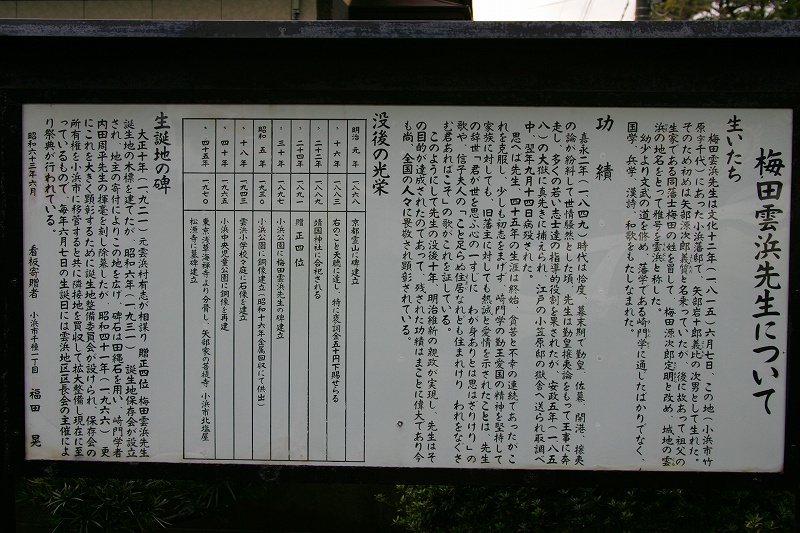 梅田雲浜先生について
生いたち
梅田雲浜先生は文化十二年(一八一五)六月七日、この地(小浜市竹
原字千代)にあった小浜藩邸、矢部岩十郎義比の次男として生れた。
そのため初めは矢部源次郎義質と名乗っていたが、後に故あって祖父の
生家である同藩士梅田の姓を冒して、梅田源次郎定明と改め、城地の雲
浜の地名をとって雅号を雲浜と称した。
幼少より文武の道を修め、藩学である崎門学に通じたばかりでなく、
国学、兵学、漢詩、和歌をもたしなまれた。
功績
嘉永二年(一八四九)時代は恰度、幕末期で勤皇、佐幕、開港、攘夷
の論が紛糾して世情騒然とした頃、先生は勤皇攘夷論をもって王事に奔
走し、多くの若い志士達の指導的役割を果されたが、安政五年(一八五
八)の大獄に真先きに捕えられ、江戸の小笠原邸の獄舎へ送られ取調べ
中、翌年九月十四日病歿された。
思へば先生、四十五年の生涯は終始、貧苦と不幸の連続であったがこ
れを克服し、少しも初志をまげず、崎門学の勤王愛国の精神を堅持して
家族に対しても、旧藩主に対しても熱誠と愛情を示されたことは、先生
の辞世「君が代を思ふ心の一すじに、わが身ありとは思はざりけり」の
歌や、信子夫人の「こと足らぬ住居なれども住まれけり、われをなぐさ
む君あればこそ」の歌がこれを証している。
このようにして先生の没後十年、明治維新の親政が実現し、先生はそ
の目的が達成されたのであって、残された功績はまことに偉大であり今
も尚、全国の人々に畏敬され顕彰されている。
没後の光栄
明治元年 一八六八 京都霊山に碑建立
〃十六年 一八八三 右のこと天聴に達し、特に褒詞金五十円下賜せらる
〃二十二年 一八八九 靖国神社に合祀される
〃二十四年 一八九一 贈正四位
〃三十年 一八九七 小浜公園に梅田雲浜先生の碑建立
昭和五年 一九三〇 小浜公園に銅像建立(昭和十六年金属回収にて供出)
〃十八年 一九四三 雲浜小学校々庭に石像建立
〃四十年 一九六五 小浜中央児童公園に銅像を再建
〃四十五年 一九七〇 東京浅草海禅寺より分骨し、矢部家の菩提寺、小浜市北塩屋
松源寺に墓碑建立
生誕地の碑
大正十年(一九二一)元雲浜村有志が相謀り、贈正四位、梅田雲浜先生
誕生地の木標を建てたが、昭和六年(一九三一)誕生地保存会が設立
され、地主の寄付によりこの地を広げ、碑石は田縄石を用い、崎門学者
内田周平先生の揮毫を刻し除幕したが、昭和四十一年(一九六六)更
にこれを大きく顕彰するために誕生地整備委員会が設けられ、保存会の
所有権を小浜市に移管すると共に隣接地を買収して拡大整備し現在に至
っているもので、毎年六月七日の生誕日には雲浜地区区長会の主催によ
り祭典が行われている。
昭和六三年六月 看板寄贈者 小浜市千種二丁目 福田 晃